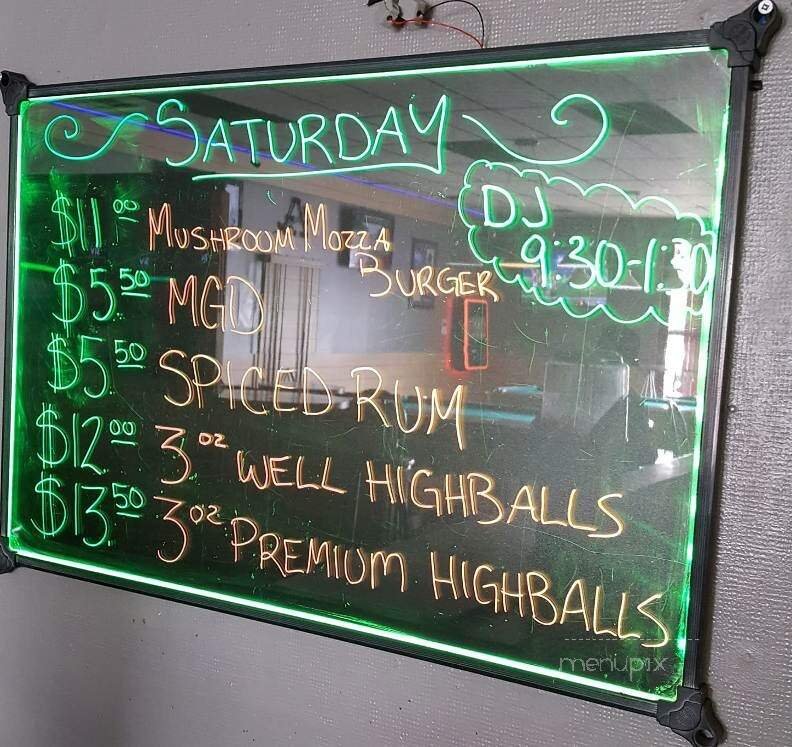 SATURDAY
DJ
9:30-1:30
$11.00 MUSHROOM MOZZA
BURGER
$5.50 MGD
$5.50 SPICED RUM
$12.00 3 oz WELL HIGHBALLS
$13.50 3 oz PREMIUM HIGHBALLS
menupix